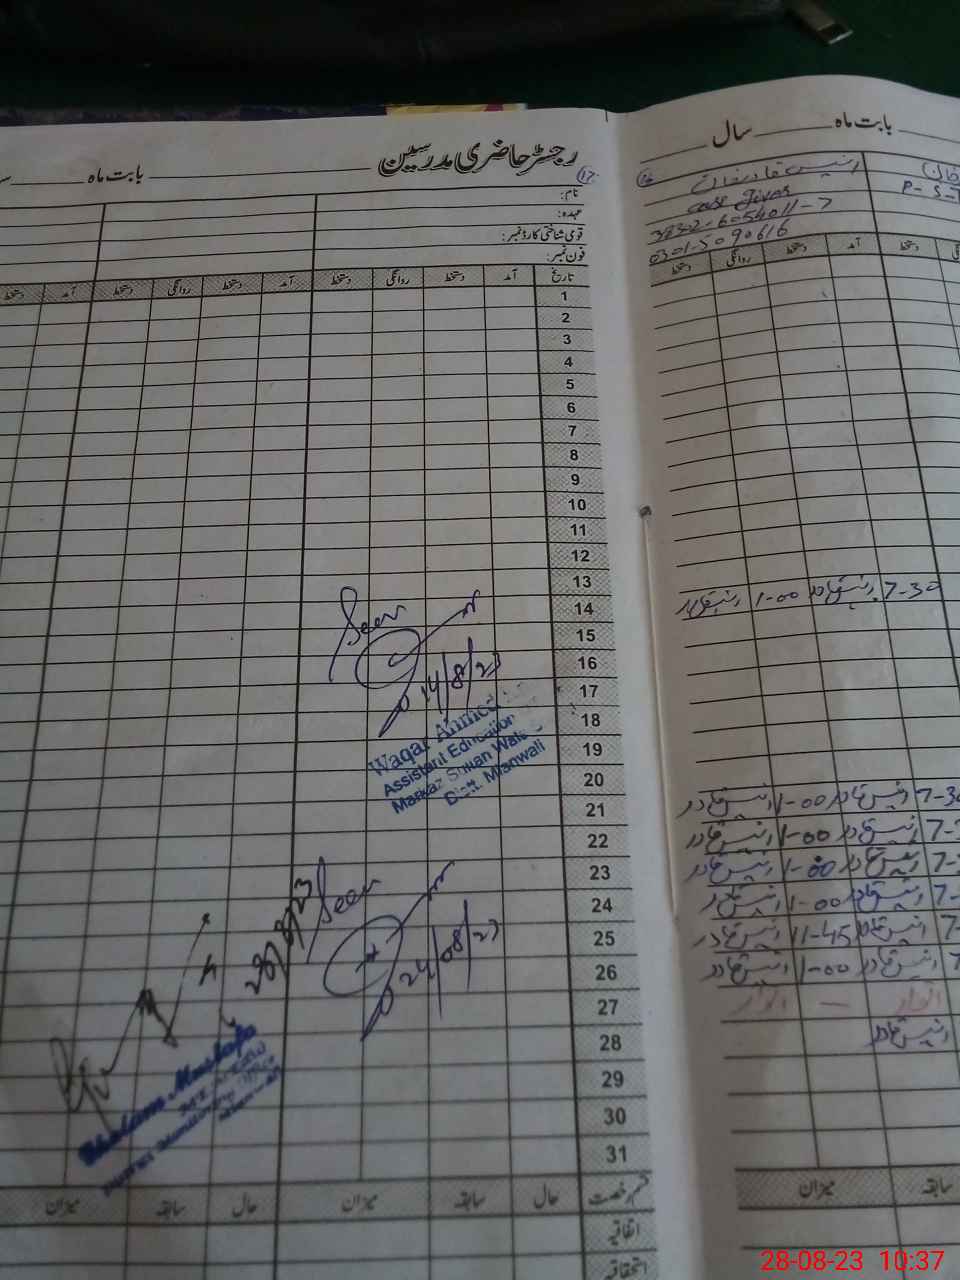 رجسٹر حاضری مدرسین
بابت ماہ
17
نام:
عہدہ:
قومی شناختی کارڈ نمبر:
فون نمبر:
تاریخ آمد دستخط روانگی دستخط آمد دستخط روانگی دستخط آمد دستخط
1
2
3
4
5
6
7
8
9
10
11
12
13
14
15
16
17
18
19
20
21
22
23
24
25
26
27
28
29
30
31
Seen
14/8/23
Waqar Ahmed
Assistant Education
Markaz
Distt. Mianwali
Seen
24/08/23
28/8/23
Ghulam Mustafa
قسم رخصت حال سابقہ میزان حال سابقہ میزان
اتفاقیہ
استحقاقیہ
بابت ماہ سال
16
خان
رئیس قادر خان
38302-6054011-7
0301-5090616
دستخط آمد دستخط روانگی دستخط
7-30 رئیس قادر 1-00 رئیس قادر
7-30 رئیس قادر 1-00 رئیس قادر
رئیس قادر 1-00 رئیس قادر
رئیس قادر 1-00 رئیس قادر
رئیس قادر 1-00 رئیس قادر
رئیس قادر 11-45 رئیس قادر
رئیس قادر 1-00 رئیس قادر
اتوار — اتوار
رئیس قادر
سابقہ میزان
28-08-23 10:37